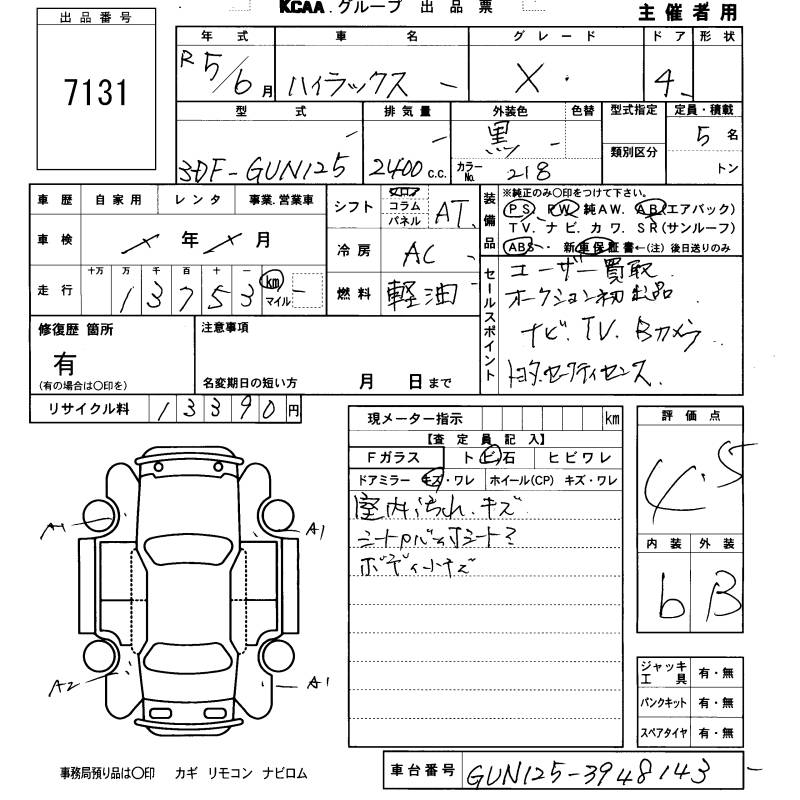 KCAA.グループ 出品票
主催者用
出品番号
7131
年式 車名 グレード ドア 形状
R5/6月 ハイラックス X 4
型式 排気量 外装色 色替 型式指定 定員・積載
3DF-GUN125 2400c.c. 黒 カラーNo. 218 類別区分 5名 トン
車歴 自家用 レンタ 事業.営業車
車検 年 月
走行 十万 万 千 百 十 一
13753 km マイル
シフト フロア コラム パネル AT
冷房 AC
燃料 軽油
装備品
※純正のみ○印をつけて下さい。
PS. PW. 純AW. AB.(エアバック)
TV. ナビ. カワ. SR(サンルーフ)
ABS. 新車保証書←(注) 後日送りのみ
セールスポイント
ユーザー買取
オークション初出品
ナビ. TV. Bカメラ
トヨタ.セーフティセンス.
修復歴 箇所
有
(有の場合は○印を)
注意事項
名変期日の短い方 月 日まで
リサイクル料 13390円
現メーター指示 km
【査定員記入】
Fガラス トビ石 ヒビワレ
ドアミラー キズ・ワレ ホイール(CP) キズ・ワレ
室内汚れ.キズ
ボディ小キズ
評価点
4.5
内装 外装
b B
A1 A1
A2 A1
ジャッキ工具 有・無
パンクキット 有・無
スペアタイヤ 有・無
事務局預り品は○印 カギ リモコン ナビロム
車台番号 GUN125-3948143